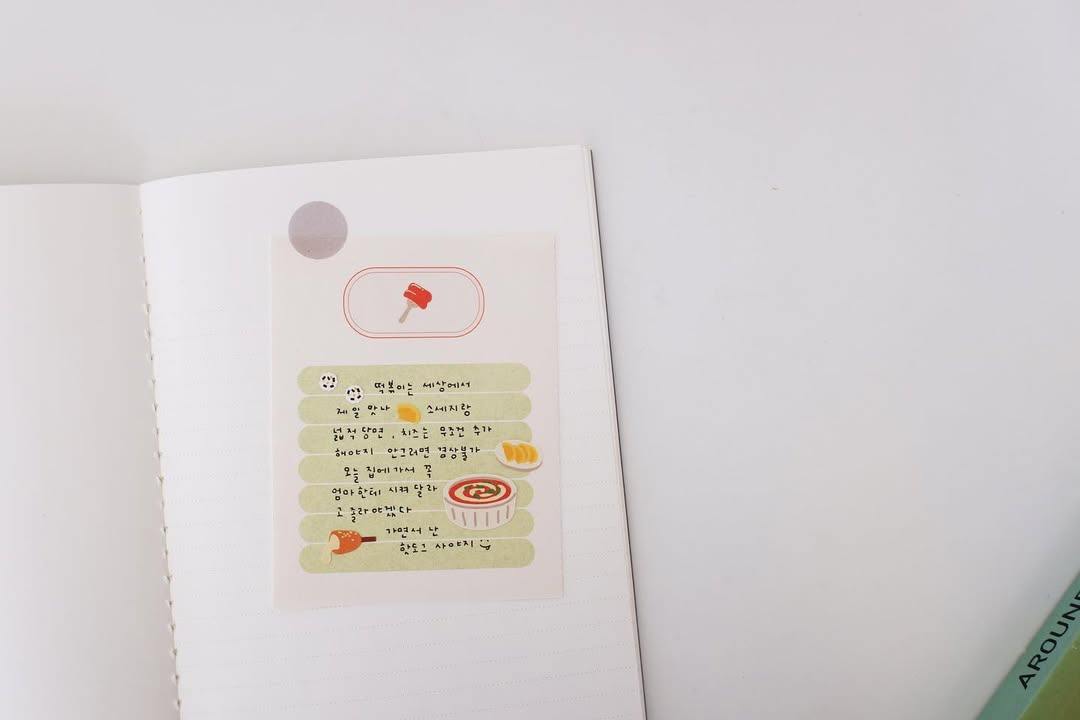 떡볶이는 세상에서
제일 맛나 소세지랑
넓적당면, 치즈는 무조건 추가
해야지 안그러면 겸상불가
오늘 집에가서 꼭
엄마한테 시켜달라
고 졸라야겠다
가면서 난
핫도그 사야지
AROUN